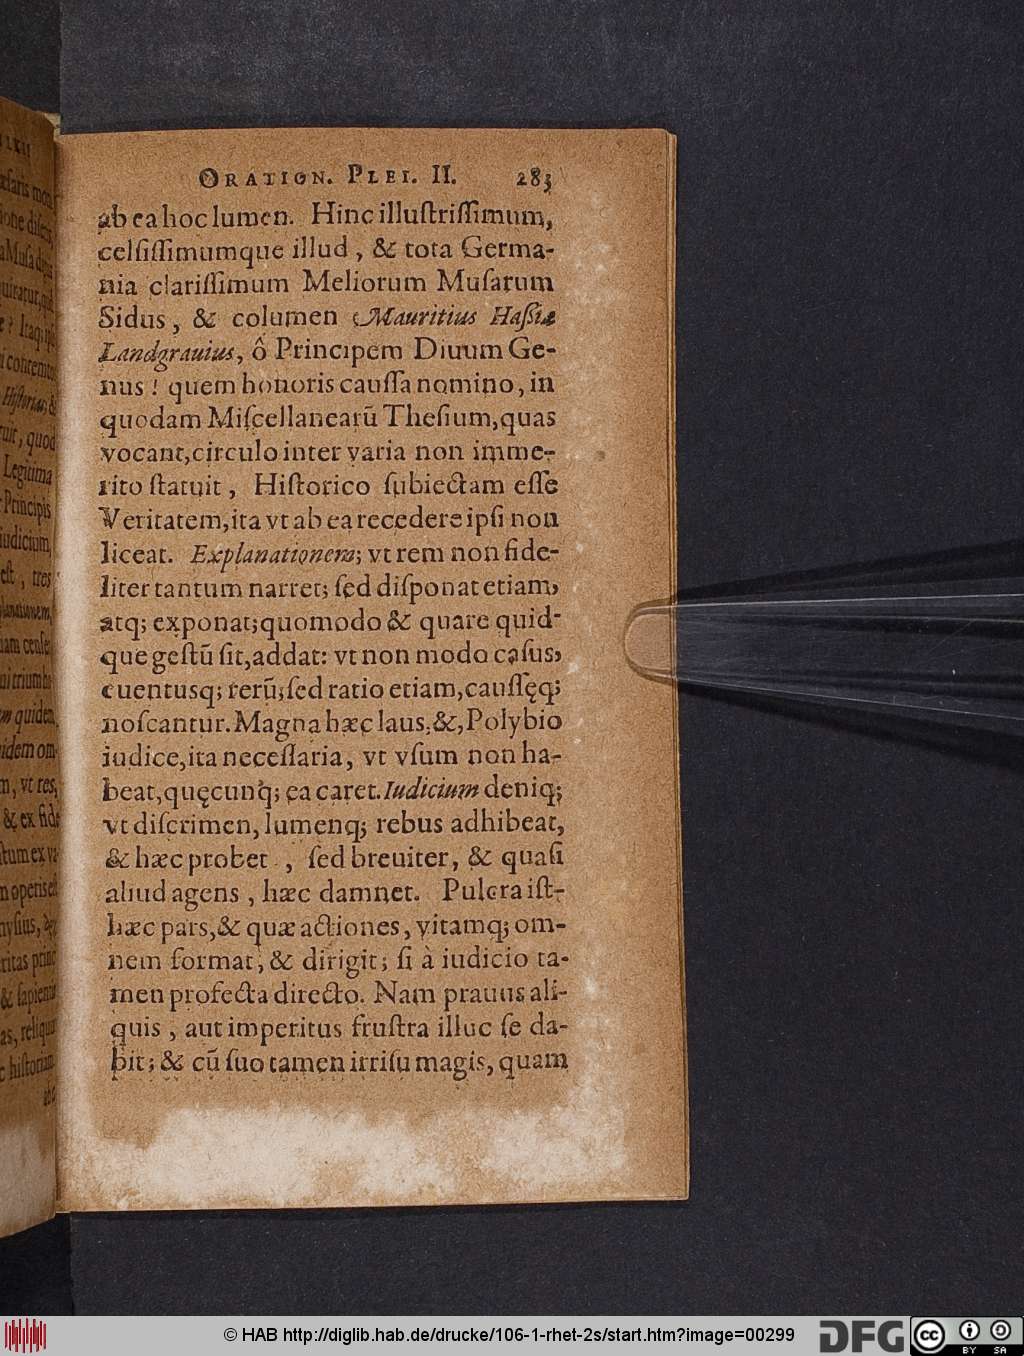 ORATION. PLEI. II. 283
ab ea hoc lumen. Hinc illuſtriſſimum,
celſiſſimumque illud, & tota Germa-
nia clariſſimum Meliorum Muſarum
Sidus, & columen Mauritius Haſsiæ
Landgrauius, ô Principem Diuum Ge-
nus! quem honoris cauſſa nomino, in
quodam Miſcellanearū Theſium, quas
vocant, circulo inter varia non imme-
rito ſtatuit, Hiſtorico ſubiectam eſſe
Veritatem, ita vt ab ea recedere ipſi non
liceat. Explanationem; vt rem non fide-
liter tantum narret; ſed diſponat etiam,
atq; exponat; quomodo & quare quid-
que geſtū ſit, addat: vt non modo caſus,
euentusq; rerū; ſed ratio etiam, cauſſęq;
noſcantur. Magna hæc laus, &, Polybio
iudice, ita neceſſaria, vt vſum non ha-
beat, quęcunq; ea caret. Iudicium deniq;
vt diſcrimen, lumenq; rebus adhibeat,
& hæc probet, ſed breuiter, & quaſi
aliud agens, hæc damnet. Pulcra iſt-
hæc pars, & quæ actiones, vitamq; om-
nem format, & dirigit; ſi à iudicio ta-
men profecta directo. Nam prauus ali-
quis, aut imperitus fruſtra illuc ſe da-
bit; & cū ſuo tamen irriſu magis, quam
© HAB http://diglib.hab.de/drucke/106-1-rhet-2s/start.htm?image=00299
DFG
cc BY SA